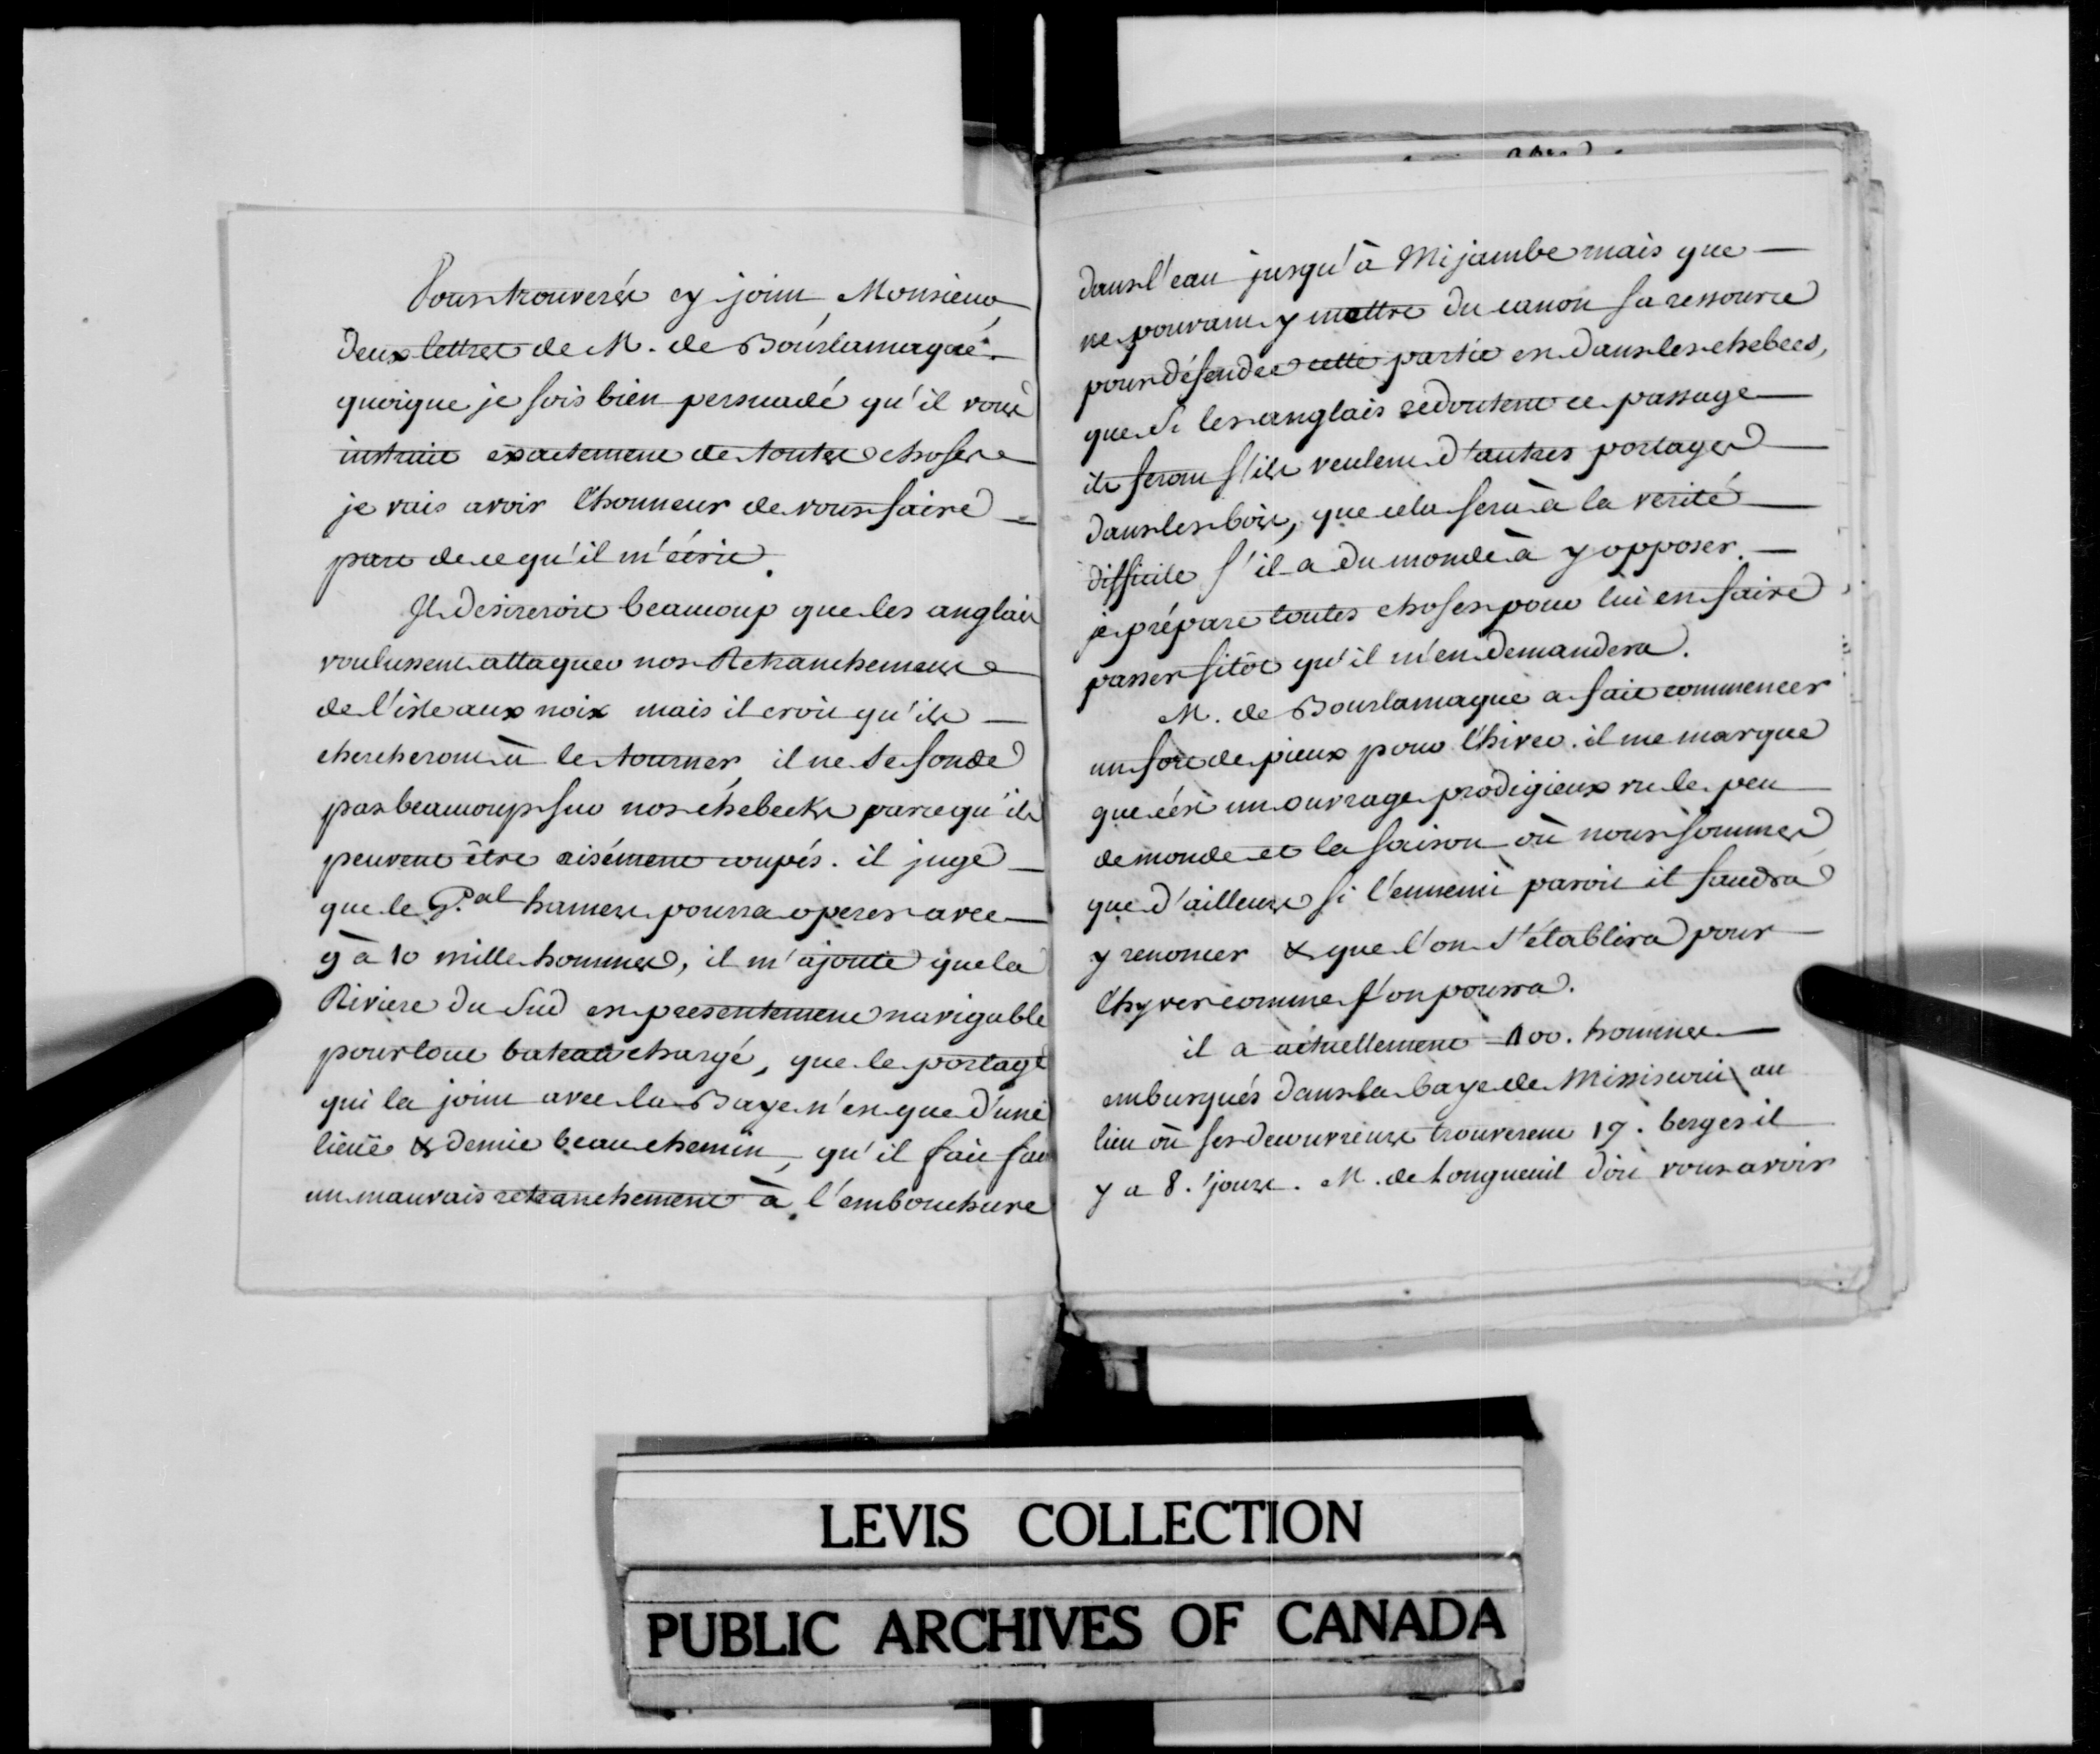 Vous trouverés cy joint, Monsieur,
deux lettres de M. de Bourlamaque.
quoique je sois bien persuadé qu'il vous
instruit exactement de toutes choses
je vais avoir l'honneur de vous faire
part de ce qu'il m'écrit.
Il desireroit beaucoup que les anglais
voulussent attaquer nos Retranchements
de l'isle aux noix mais il croit qu'ils
chercheront à le tourner, il ne se fonde
pas beaucoup sur nos chebecks parcequ'ils
peuvent être aisément coupés. il juge
que le G.al hamers pourra operer avec
9 à 10 mille hommes, il m'ajoute que la
Riviere du Sud est presentement navigable
pour tout bateau chargé, que le portage
qui la joint avec la Baye n'est que d'une
lieuë & demie beau chemin, qu'il fait faire
un mauvais retranchement à l'embouchure
dans l'eau jusqu'à Mijambe mais que
ne pouvant y mettre du canon sa ressource
pour défendre cette partie est dans les chebecs,
que si les anglais redoutent ce passage
ils feront s'ils veulent d'autres portages
dans les bois, que cela sera à la verité
difficile s'il a du monde à y opposer.
je prépare toutes choses pour lui en faire
passer sitôt qu'il m'en demandera.
M. de Bourlamaque a fait commencer
un fort de pieux pour l'hiver. il me marque
que c'est un ouvrage prodigieux vu le peu
de monde et la saison où nous sommes
que d'ailleurs si l'ennemi paroit il faudra
y renoncer & que l'on s'établira pour
l'hyver comme l'on pourra.
il a actuellement 400. hommes
embusqués dans la baye de Missiscoui au
lieu où ses decouvreurs trouverent 17. berges il
y a 8. jours. M. de Longueuil doit vous avoir
LEVIS COLLECTION
PUBLIC ARCHIVES OF CANADA